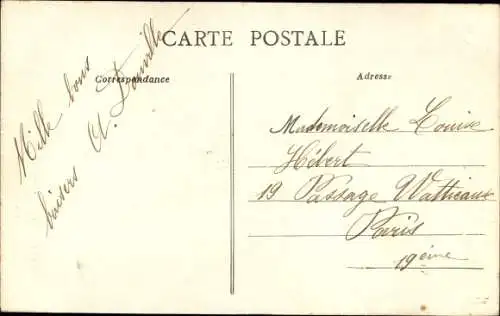 CARTE POSTALE
Correspondance
Adresse
Mille bons
baisers A. Douville
Mademoiselle Louise
Hébert
19 Passage Wattieaux
Paris
19ème